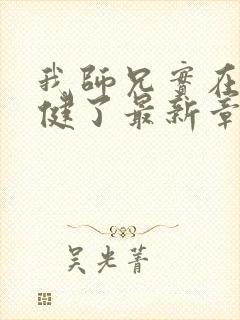 我師兄實在
健了最新章
吴光菁